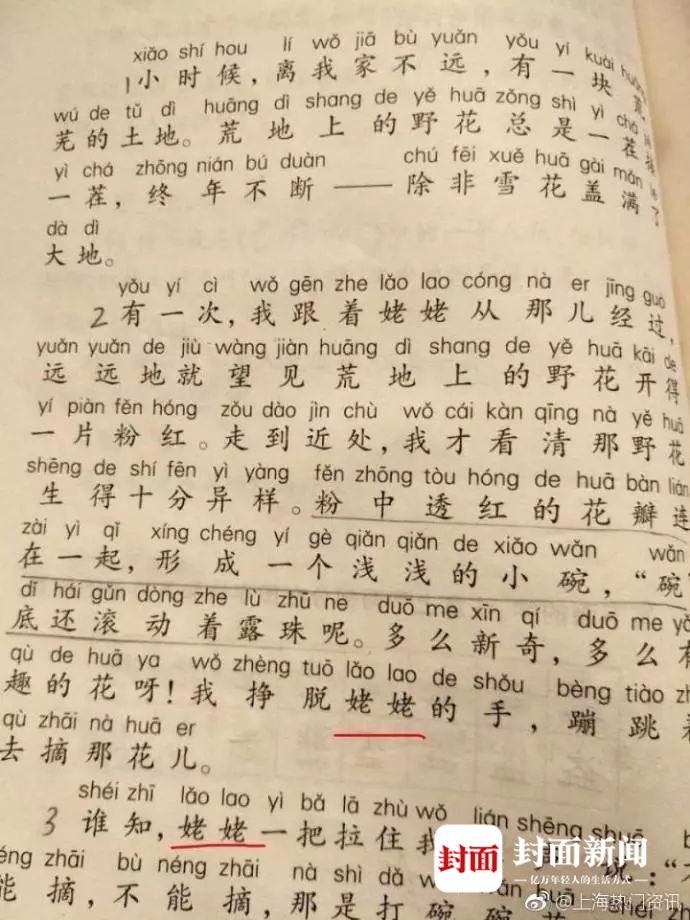 xiǎo shí hou lí wǒ jiā bù yuǎn yǒu yí kuài
1小时候，离我家不远，有一块
wú de tǔ dì huāng dì shang de yě huā zǒng shì yì chá
芜的土地。荒地上的野花总是一茬接
yì chá zhōng nián bú duàn chú fēi xuě huā gài mǎn
一茬，终年不断——除非雪花盖满了
dà dì
大地。
yǒu yí cì wǒ gēn zhe lǎo lao cóng nà er jīng guò
2有一次，我跟着姥姥从那儿经过，
yuǎn yuǎn de jiù wàng jiàn huāng dì shang de yě huā kāi de
远远地就望见荒地上的野花开得
yí piàn fěn hóng zǒu dào jìn chù wǒ cái kàn qīng nà yě huā
一片粉红。走到近处，我才看清那野花
shēng de shí fēn yì yàng fěn zhōng tòu hóng de huā bàn lián
生得十分异样。粉中透红的花瓣连
zài yì qǐ xíng chéng yí gè qiǎn qiǎn de xiǎo wǎn wǎn
在一起，形成一个浅浅的小碗，“碗”
dǐ hái gǔn dòng zhe lù zhū ne duō me xīn qí duō me
底还滚动着露珠呢。多么新奇，多么有
qù de huā ya wǒ zhèng tuō lǎo lao de shǒu bèng tiào
趣的花呀！我挣脱姥姥的手，蹦跳着
qù zhāi nà huā er
去摘那花儿。
shéi zhī lǎo lao yì bǎ lā zhù wǒ lián shēng shuō
3谁知，姥姥一把拉住我
néng zhāi bù néng zhāi nà shì dǎ wǎn wǎn huā
能摘，不能摘，那是打碗碗花
封面
封面新闻
亿万年轻人的生活方式
@上海热门资讯